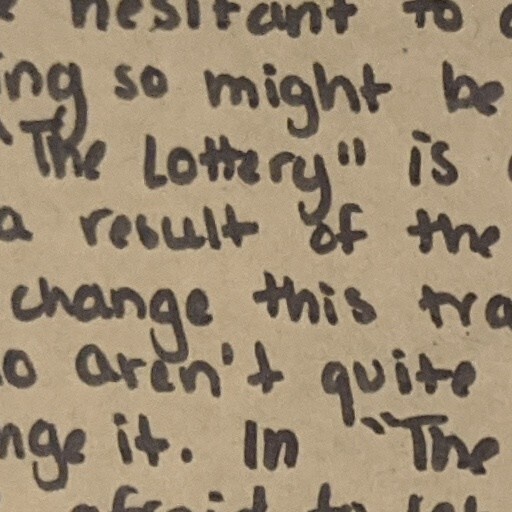 hesitant to
ing so might be
"The Lottery" is
a result of the
change this tra
o aren't quite
nge it. In "The
afraid to let